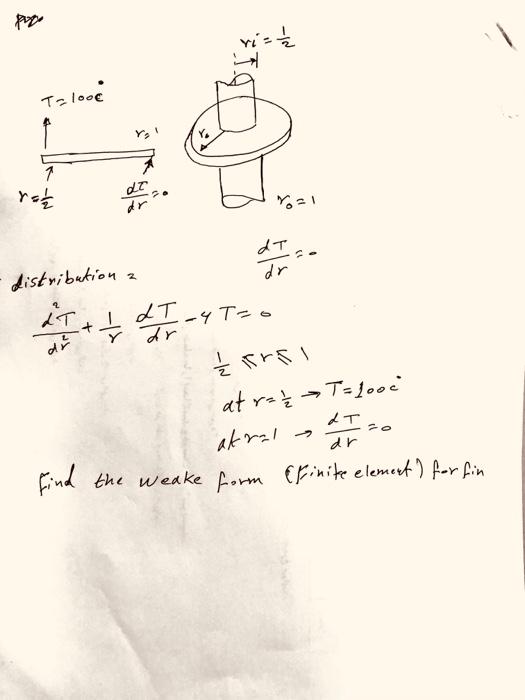 ri = 1/2
T=100c°
r=1
r₀
r=1/2
dT/dr = 0
r₀ = 1
dT/dr = 0
distribution =
d²T/dr² + 1/r dT/dr - 4T = 0
1/2 ≤ r ≤ 1
at r = 1/2 → T=100c°
at r=1 → dT/dr = 0
Find the weake form (finite element) for fin